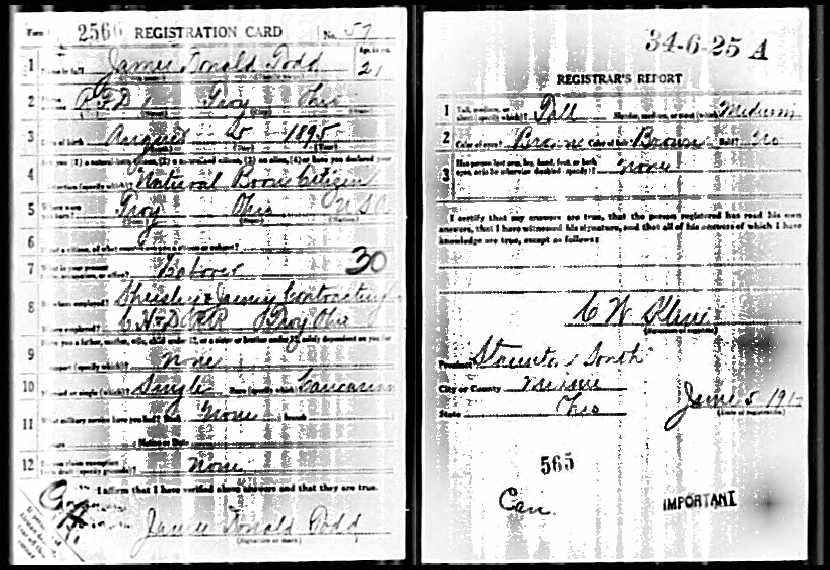 Form 1 2566 REGISTRATION CARD No. 57
1 Name in full James Donald Todd Age, in yrs. 21
2 R.F.D. 1 Troy Ohio
3 Date of birth August 1895
4 Are you (1) a natural-born citizen, (2) a naturalized citizen, (3) an alien, (4) or have you declared your
intention (specify which)? Natural Borne Citizen
5 Where were you born? Troy Ohio U S A
6 If not a citizen, of what country are you a citizen or subject?
7 What is your present trade, occupation, or office? Laborer 30
8 By whom employed? & Contracting
Where employed? C.H.&D.R.R. Troy Ohio
9 Have you a father, mother, wife, child under 12, or a sister or brother under 12, solely dependent on you for
support (specify which)? None
10 Married or single (which)? Single Race (specify which)? Caucasian
11 What military service have you had? Rank None branch
years Nation or State
12 Do you claim exemption from draft (specify grounds)? None
I affirm that I have verified above answers and that they are true.
James Donald Todd
(Signature or mark)
34-6-25 A
REGISTRAR'S REPORT
1 Tall, medium, or short (specify which)? Tall Slender, medium, or stout (which)? Medium
2 Color of eyes? Brown Color of hair? Brown Bald? No
3 Has person lost arm, leg, hand, foot, or both eyes, or is he otherwise disabled (specify)? None
I certify that my answers are true, that the person registered has read his own
answers, that I have witnessed his signature, and that all of his answers of which I have
knowledge are true, except as follows:
C W Kline
(Signature of registrar)
Precinct Staunton South
City or County Miami
State Ohio
June 5 1917
(Date of registration)
565
Can.
IMPORTANT